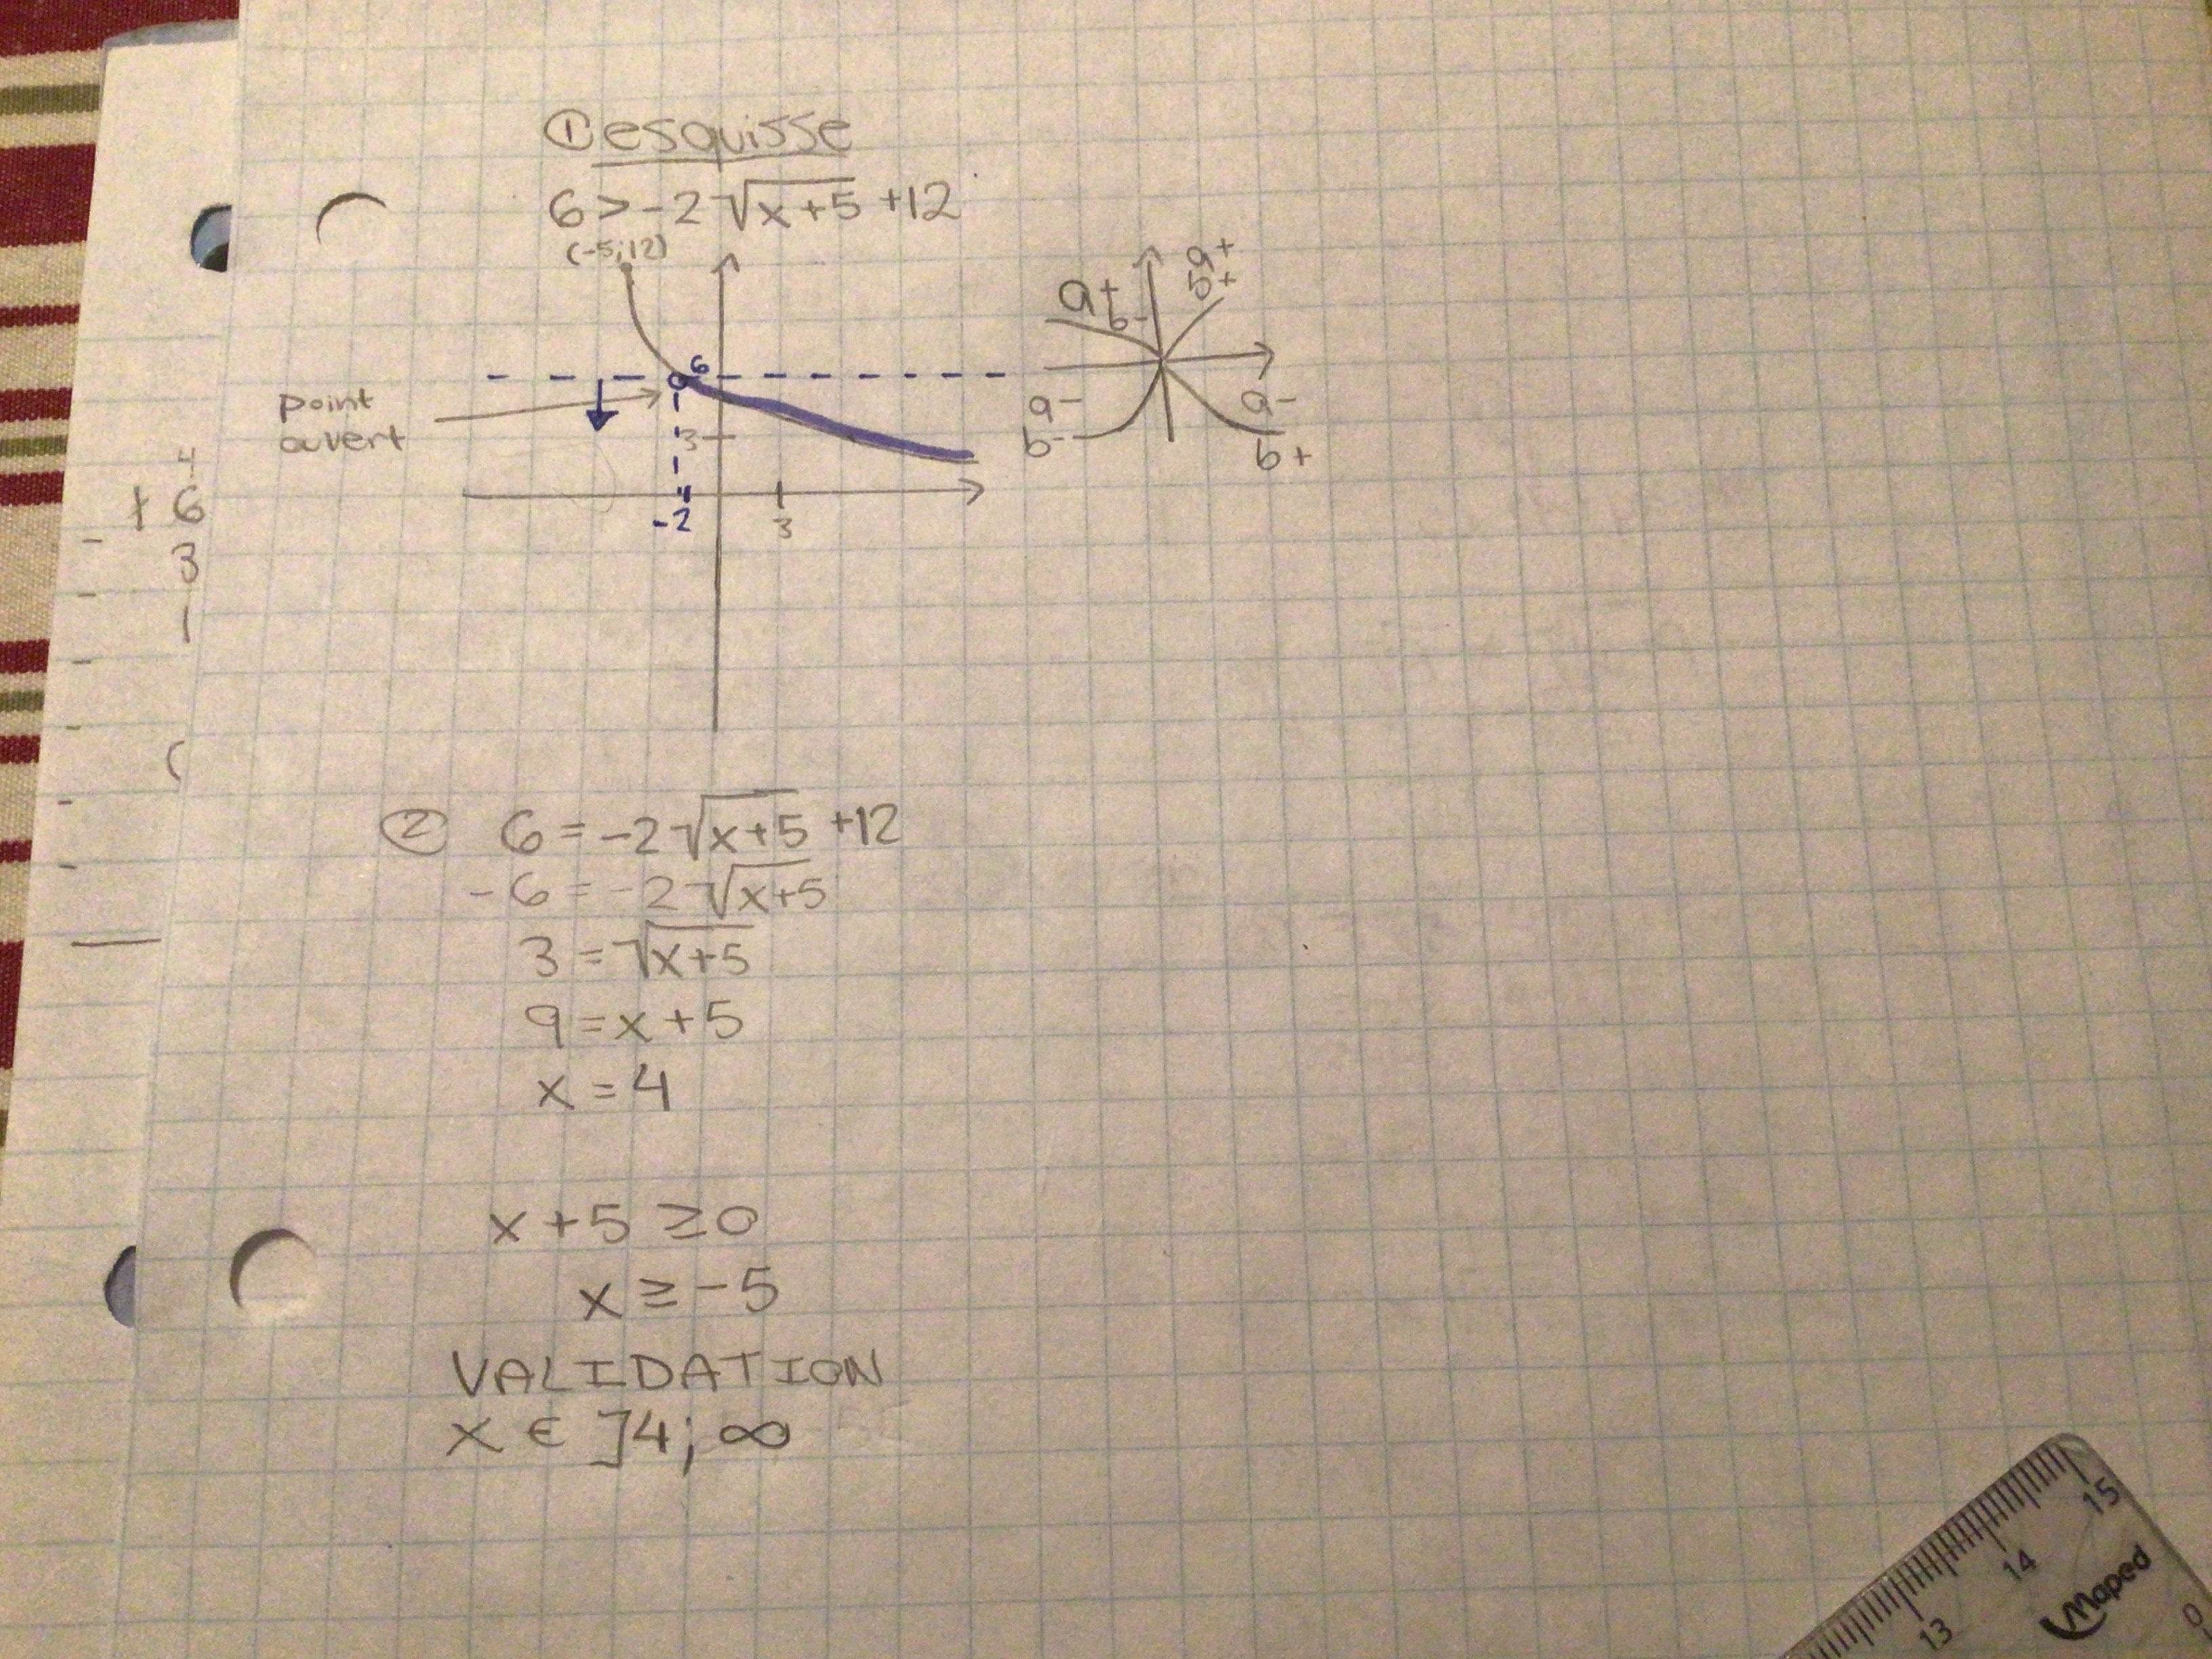 ① esquisse
6 > -2√x+5 +12
(-5;12)
6
point
ouvert
3
-2
3
a+
b-
a+
b+
a-
b-
a-
b+
+ 6
3
1
② 6 = -2√x+5 +12
-6 = -2√x+5
3 = √x+5
9 = x+5
x = 4
x+5 ≥ 0
x ≥ -5
VALIDATION
x ∈ ]4; ∞
15
14
13
Maped